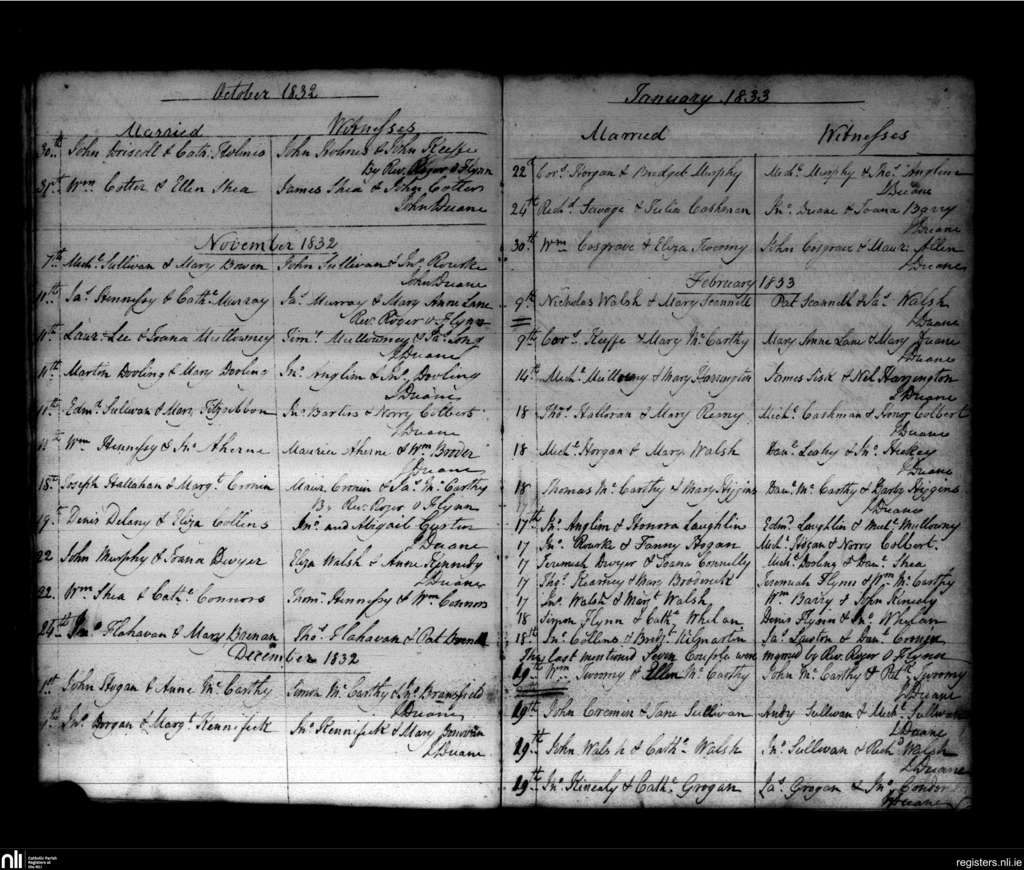 October 1832
Married Witnesses
30th John Driscoll & Cath. Holmes John Holmes & John Keeffe
By Rev. Roger O Flynn
31st Wm Cotter & Ellen Shea James Shea & John Cotter
John Duane
November 1832
7th Michl Sullivan & Mary Bowen John Sullivan & Jno Rourke
John Duane
11th Jas Hennessy & Cathe Murray Jas Murray & Mary Anne Lane
Rev. Roger O Flynn
11th Laur. Lee & Joana Mullowney Timy Mullowney & Long
J Duane
11th Martin Dooling & Mary Dooling Jno Anglim & Jno Dooling
J Duane
11th Edmd Sullivan & Mary Fitzgibbon Jno Bartlis & Norry Colbert
J Duane
11th Wm Hennessy & Jno Aherne Maurice Aherne & Wm Broder
J Duane
18th Joseph Hallahan & Margt Cronin Maur. Cronin & Jas McCarthy
By Rev. Roger O Flynn
19th Denis Delany & Eliza Collins Jno and Abigail Curtin
J Duane
22 John Murphy & Joana Dwyer Eliza Walsh & Anne Kennedy
J Duane
22. Wm Shea & Cathe Connors Thoms Hennessy & Wm Connors
24th Jno Flahavan & Mary Brenan Thos Flahavan & Pat
December 1832
1st John Hogan & Anne McCarthy Simon McCarthy & Jno Bransfield
J Duane
Jno Horgan & Margt Kennifick Jno Kennifick & Mary
J Duane
January 1833
Married Witnesses
22d Cors Horgan & Bridget Murphy Michl Murphy & Thos Anglim
J Duane
24th Richd Savage & Julia Cashman Jno Duane & Joana Barry
J Duane
30th Wm Cosgrave & Eliza Twomy John Cosgrave & Maur. Allen
J Duane
February 1833
9th Nicholas Walsh & Mary Scannell Pat Scannell & Jas Walsh
J Duane
9th Cors Keeffe & Mary McCarthy Mary Anne Lane & Mary Duane
J Duane
14th Michl & Mary Harrington James Fisk & Nel Harrington
J Duane
18 Thos Halloran & Mary Remy Michl Cashman & Honor Colbert
J Duane
18 Michl Horgan & Mary Walsh Danl Leahy & Jno Hickey
J Duane
18 Thomas McCarthy & Mary Higgins Danl McCarthy & Darby Higgins
J Duane
17th Jno Anglim & Honora Laughlin Edmd Laughlin & Michl Mullowny
17 Jno Rourke & Fanny Hogan Michl Hogan & Norry Colbert.
17 Jeremiah Dwyer & Joana Connelly Michl Dooling & Danl Shea
17 Thos Kearney & Mary Broderick Jeremiah Flynn & Wm McCarthy
17 Jno Walsh & Margt Walsh Wm Barry & John Kinealy
18 Simon Flynn & Cathe Whelan Denis Flynn & Jno Whelan
18th Jno Collens & Bridgt Kilmartin Jas & Danl Cronin
The last mentioned Seven Couple were married by Rev. Roger O Flynn
19th Wm Twomy & Ellen McCarthy John McCarthy & Pat Twomy
J Duane
19th John Cremin & Jane Sullivan Andy Sullivan & Michl Sullivan
J Duane
19th John Walsh & Cathe Walsh Jno Sullivan & Richd Walsh
J Duane
19th Jno Kinealy & Cathe Grogan Jas Grogan & Jno Condon
J Duane
nli
Catholic Parish
Registers at
the NLI
registers.nli.ie